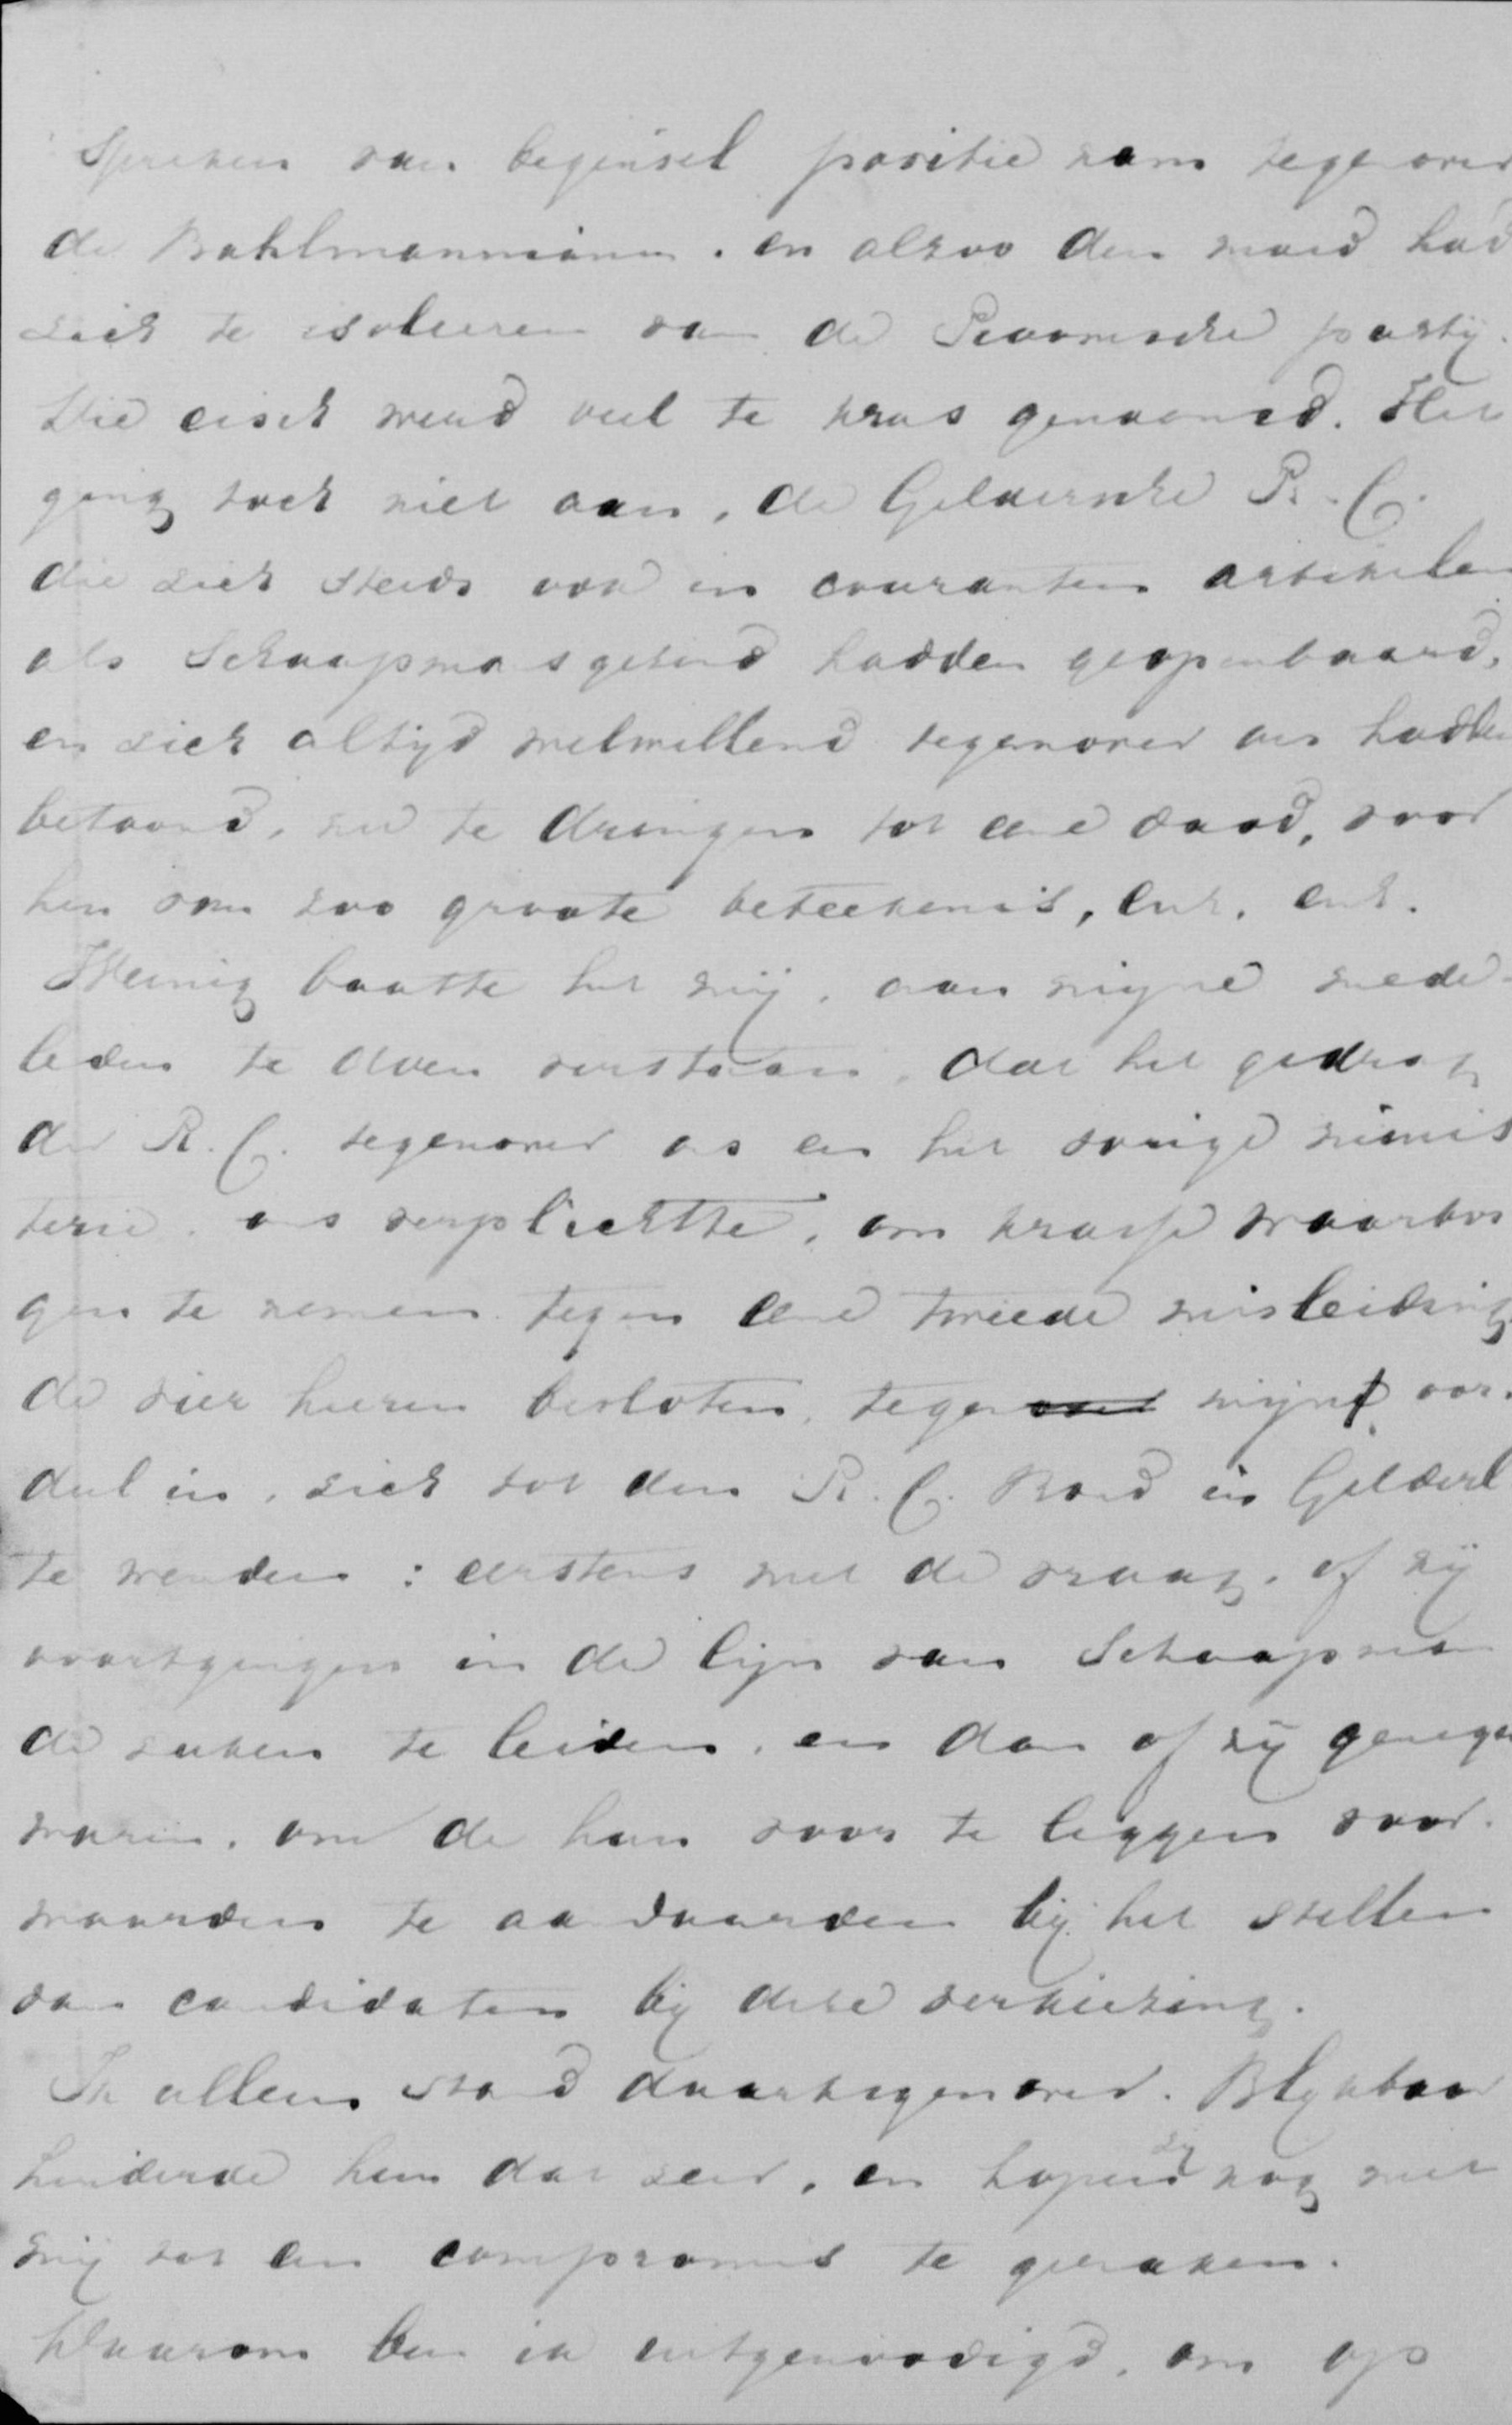 spreken van beginsel positie nam tegenover
de Bahlmannianen. en alzoo den moed had
zich te isoleeren van de Roomsche partij.
Die eisch werd veel te kras genoemd. Het
ging toch niet aan, de Geldersche R. C.
die zich steeds ook in couranten artikelen
als Schaapmansgezind hadden geopenbaard,
en zich altijd welwillend tegenover ons hadden
betoond, nu te dringen tot eene daad, voor
hen van zoo groote beteekenis, enz. enz.
Weinig baatte het mij, aan mijne mede-
leden te doen verstaan, dat het gedrag
der R. C. tegenover ons en het vorige minis
terie. ons verplichtte, om krasse waarbor
gen te nemen tegen eene tweede misleiding
de vier heeren besloten, tegen mijn oor-
deel in, zich tot den R. C. Bond in Gelderl
te wenden: eerstens met de vraag, of zij
voortgingen in de lijn van Schaapman
de zaken te leiden, en dan of zij genegen
waren, om de hun voor te leggen voor-
waarden te aanvaarden bij het stellen
van candidaten bij deze verkiezing.
Ik alleen stond daartegenover. Blijkbaar
hinderde hen dat zeer, en hopend zij nog met
mij tot een compromis te geraken.
Waarom ben ik uitgenoodigd, om op